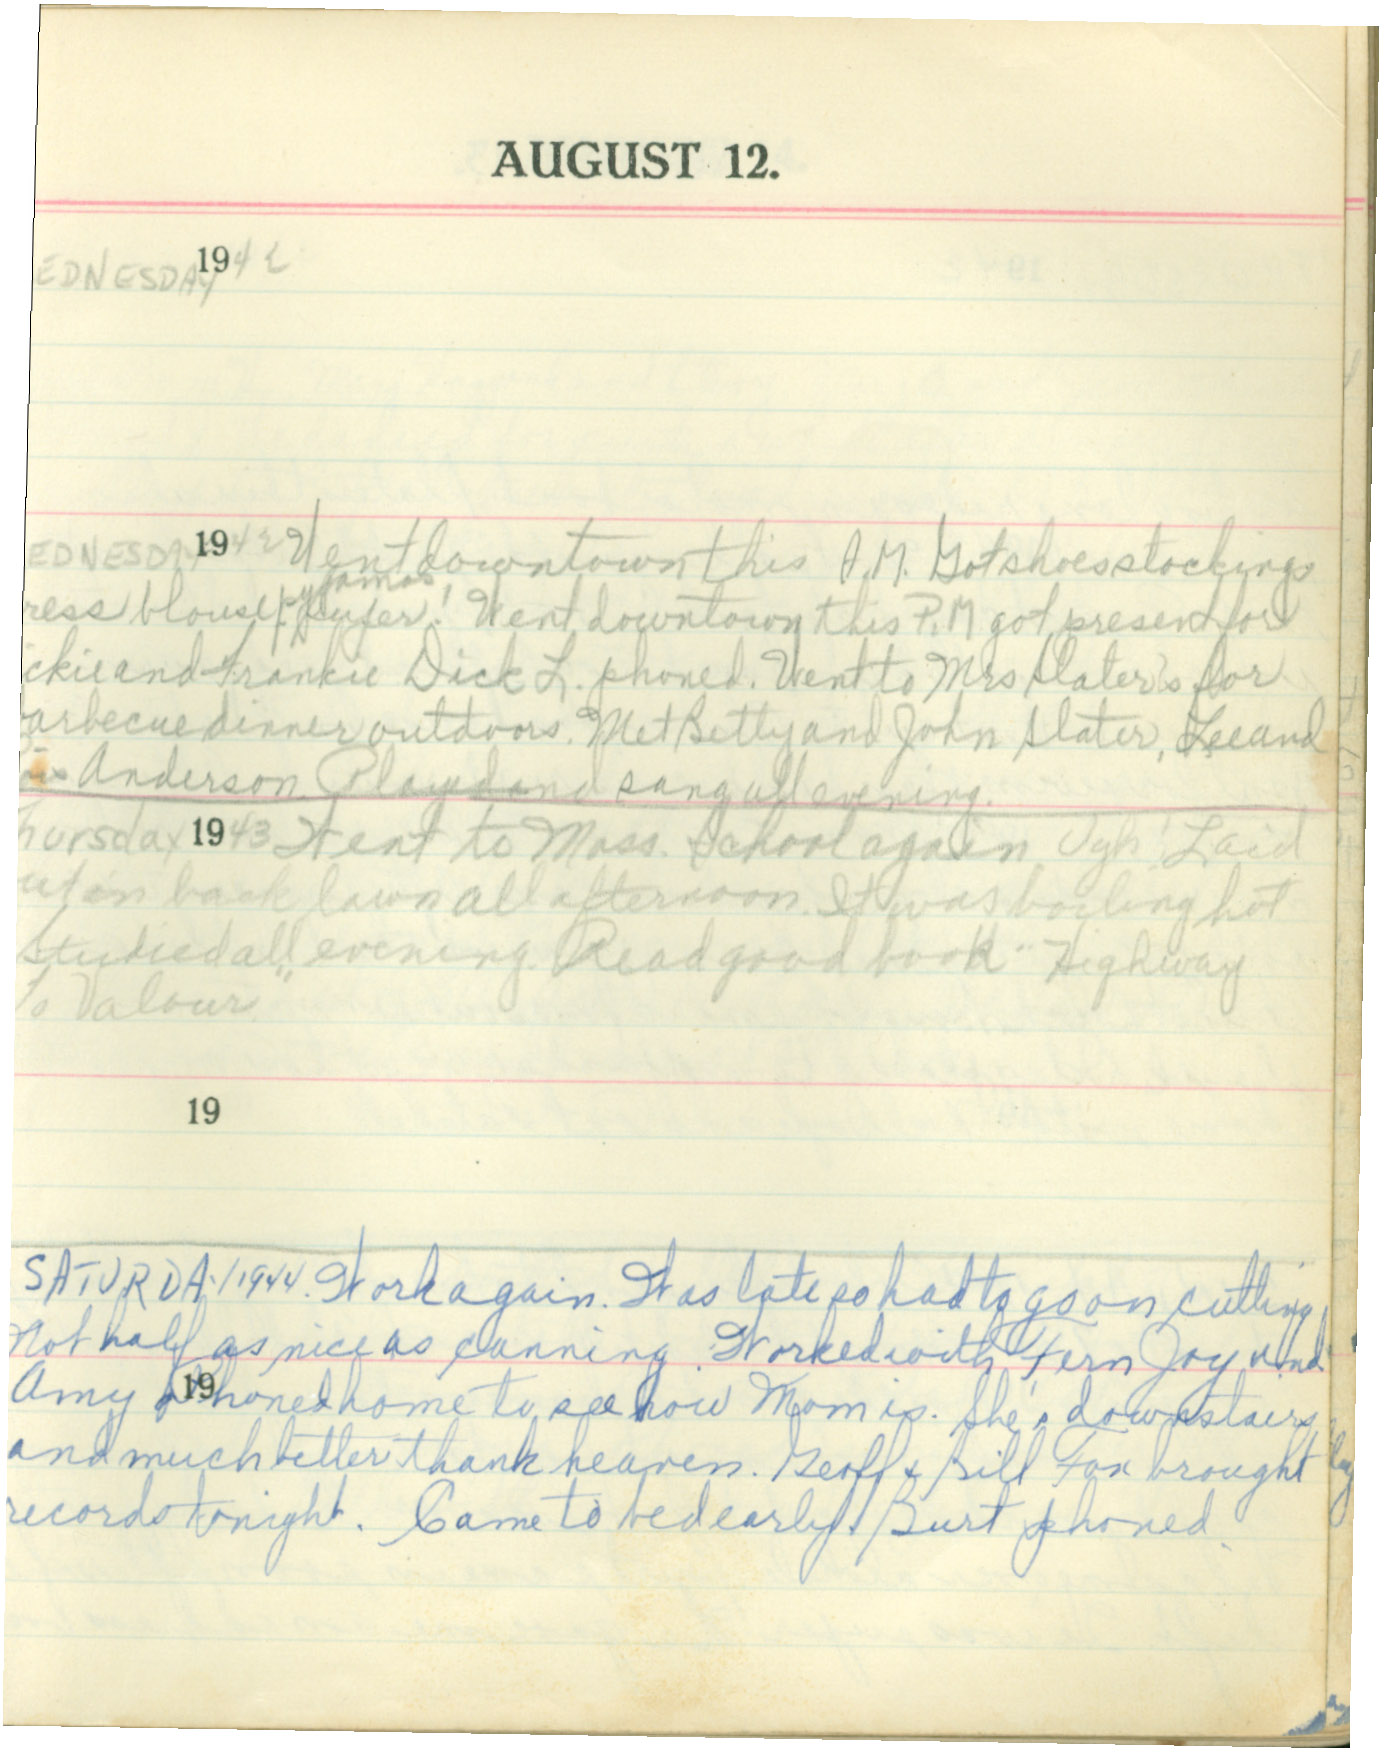 AUGUST 12.
EDNESDAY 1942
EDNESDAY 1942 Went downtown this A.M. Got shoes stockings
ress blouse pyjamas Super! Went downtown this P.M got present for
ickie and Frankie Dick L. phoned. Went to Mrs Slater's for
arbecue dinner outdoors. Met Betty and John Slater, Lee and
Anderson. Played and sang all evening.
hursday 1943 Went to Mass. School again Ugh! Laid
ut on back lawn all afternoon. It was boiling hot
Studied all evening. Read good book "Highway
To Valour"
19
SATURDAY 1944. Work again. Was late so had to go on cutting
Not half as nice as canning. Worked with Fern Joy and
Amy 19 Phoned home to see how Mom is. She's downstairs
and much better thank heaven. Geoff & Bill Fox brought
records tonight. Came to bed early. Burt phoned.